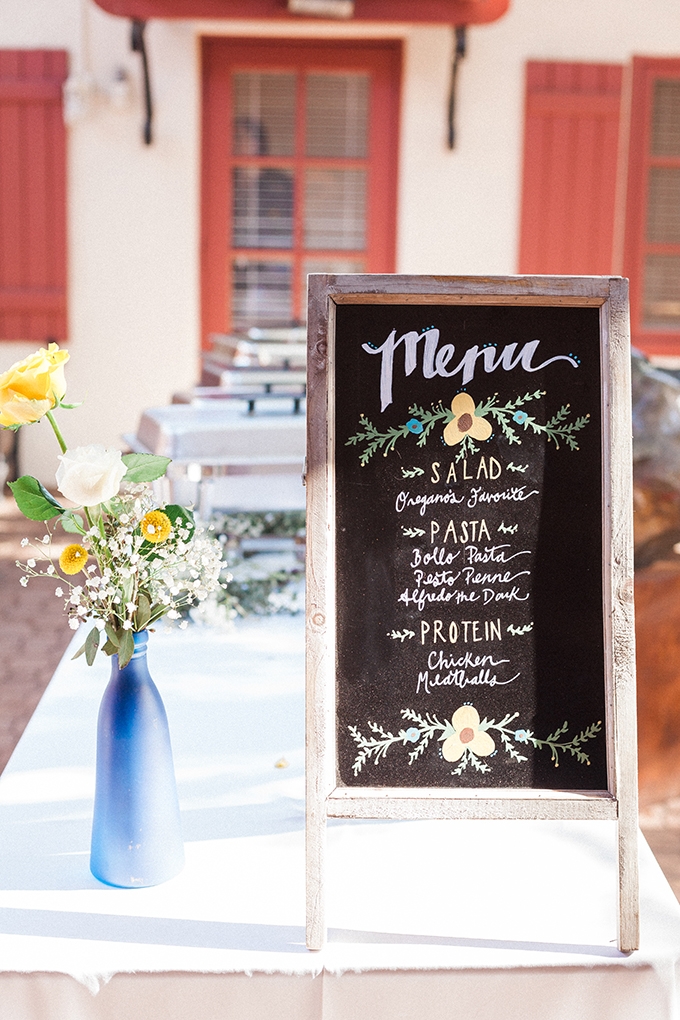 Menu
SALAD
Oregano's Favorite
PASTA
Bollo Pasta
Pesto Penne
Alfredo the Dark
PROTEIN
Chicken
Meatballs